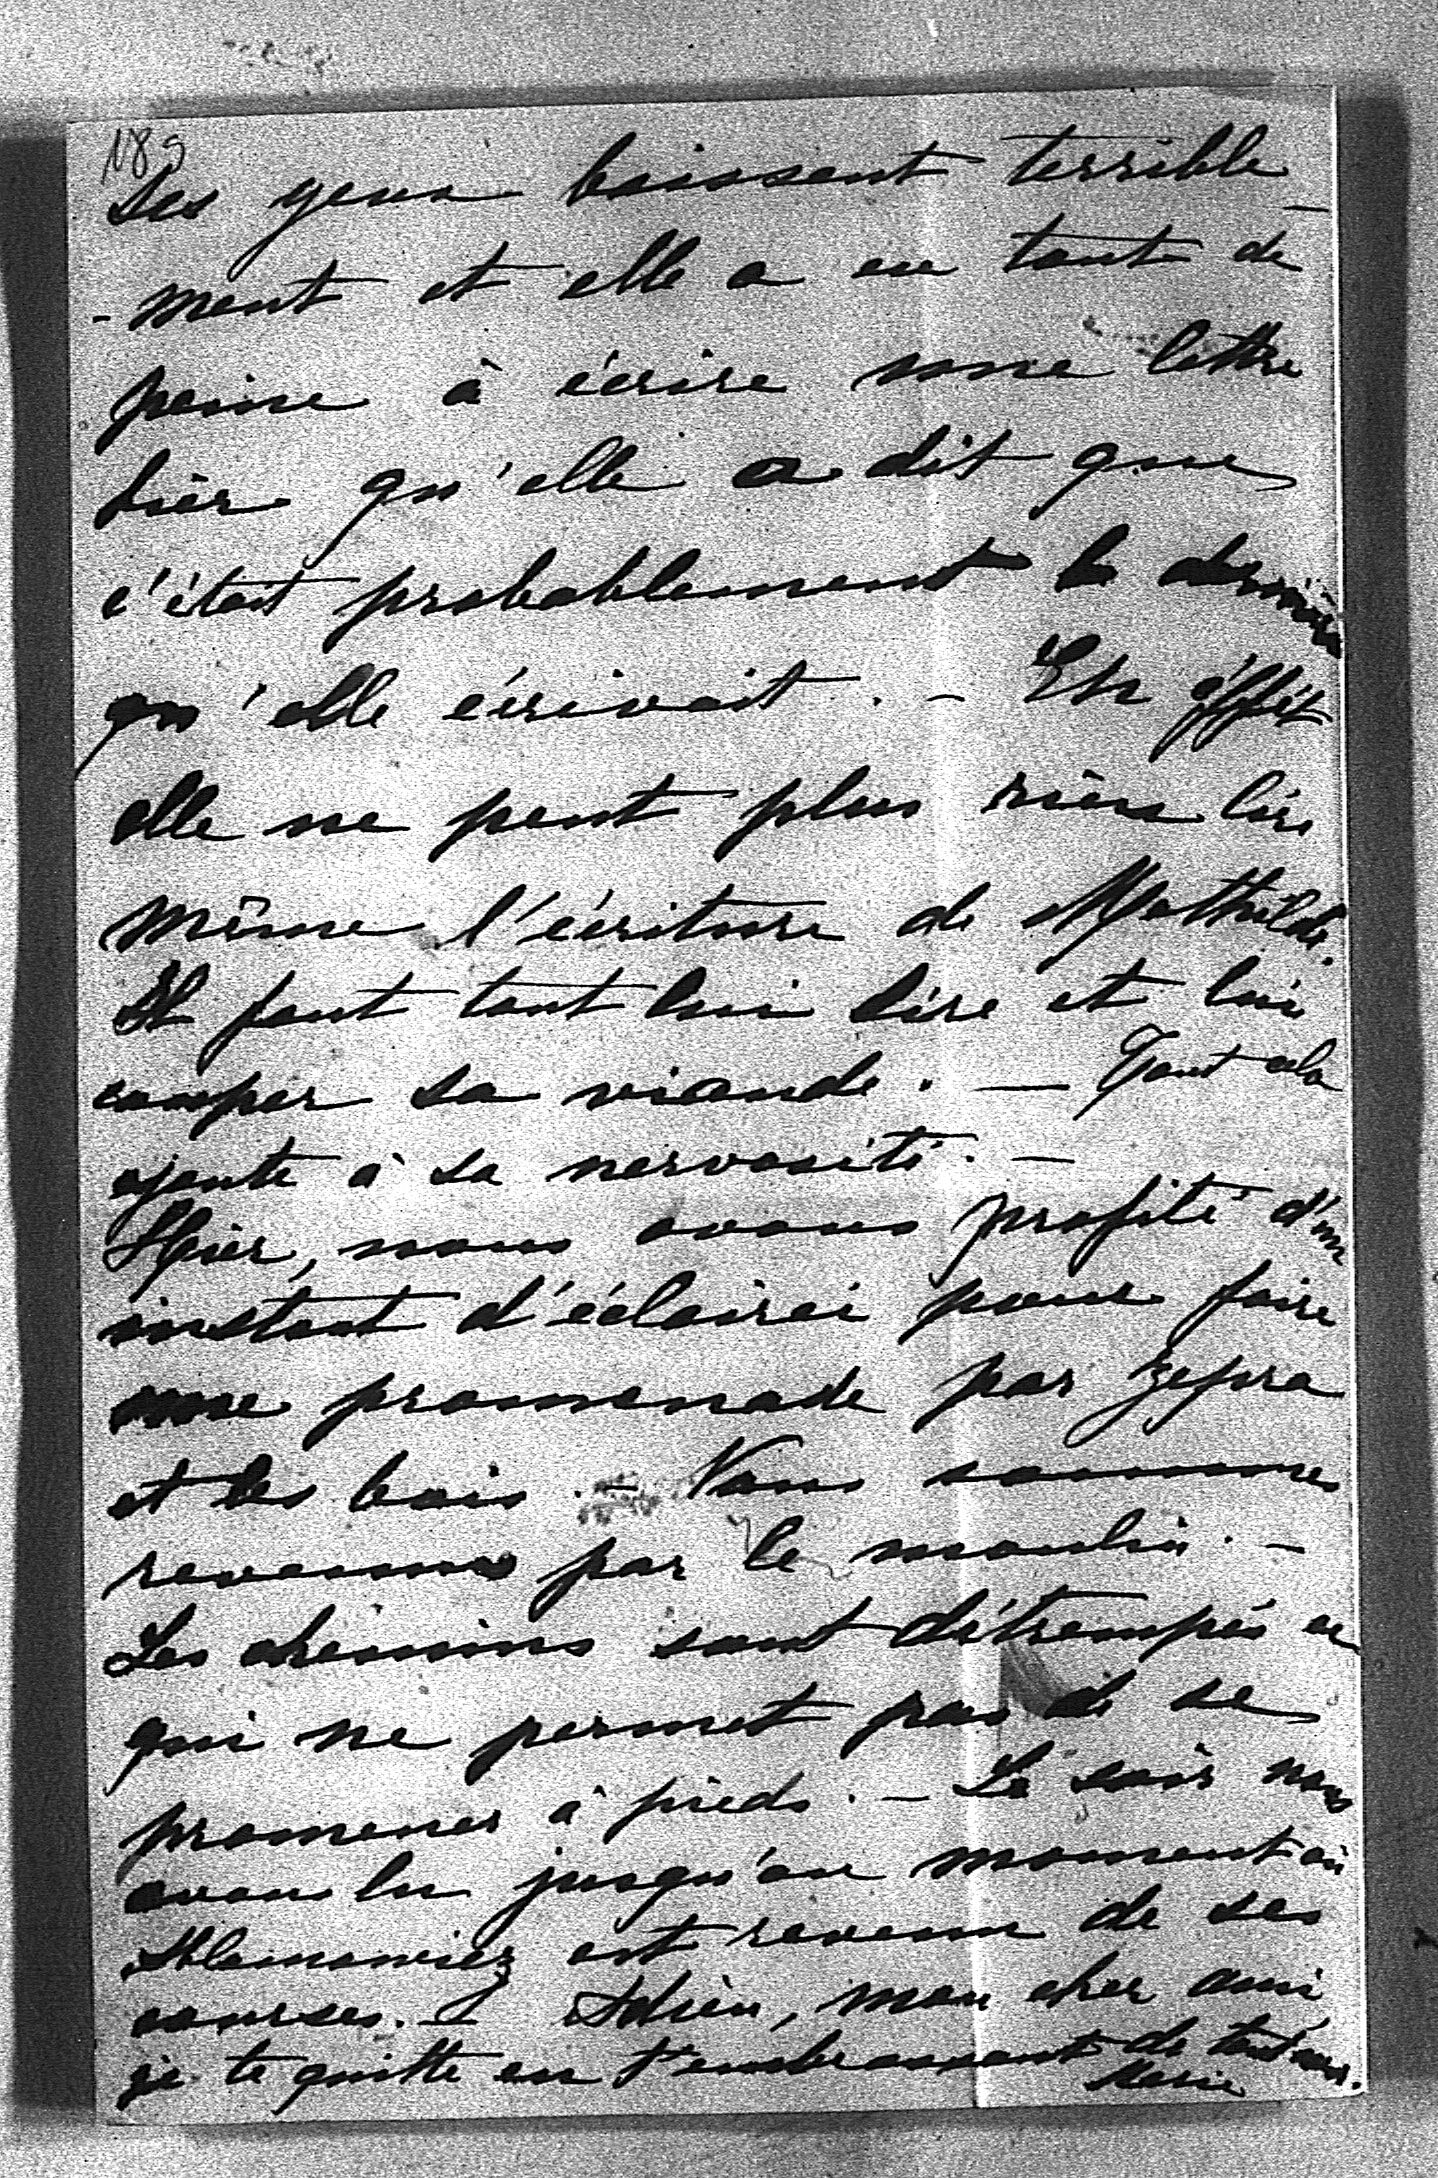 189
Ses yeux baissent terrible-
-ment et elle a eu tant de
peine à écrire une lettre
hier qu'elle a dit que
c'était probablement la dernière
qu'elle écrivait. - En éffét
elle ne peut plus rien lire
même l'écriture de Mathilde.
Il faut tout lui lire et lui
couper sa viande. — Tout cela
ajoute à sa nervosité. —
Hier, nous avons profité d'un
instant d'éclairci pour faire
une promenade par
et les bois. - Nous sommes
revenus par le moulin. -
Les chemins sont détrempés ce
qui ne permet pas de se
promener à pieds. - Le soir nous
avons lu jusqu'au moment où
est revenu de ses
courses. - Adieu, mon cher ami
je te quitte en t'embrassant de tout cœur.
Marie